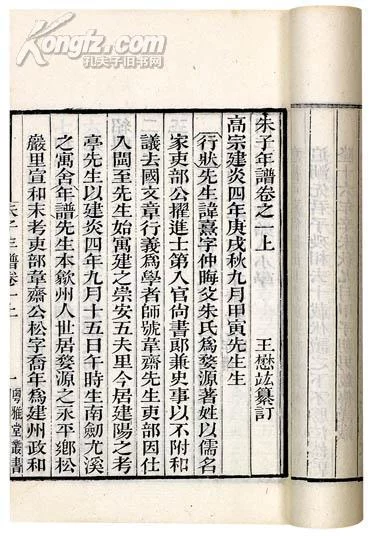 Kongfz.com
孔夫子旧书网
朱子年譜卷之一上
王懋竑纂訂
高宗建炎四年庚戌秋九月甲寅先生生
行狀先生諱熹字仲晦父朱氏爲婺源著姓以儒名
家吏部公擢進士第入官尚書郎兼史事以不附和
議去國文章行義爲學者師號韋齋先生吏部因仕
入閩至先生始寓建之崇安五夫里今居建陽之考
亭先生以建炎四年九月十五日午時生南劒尤溪
之寓舍年譜先生本歙州人世居婺源之永平鄉松
巖里宣和末考吏部韋齋公松字喬年爲建州政和
朱子年譜卷一上
一
粵雅堂叢書